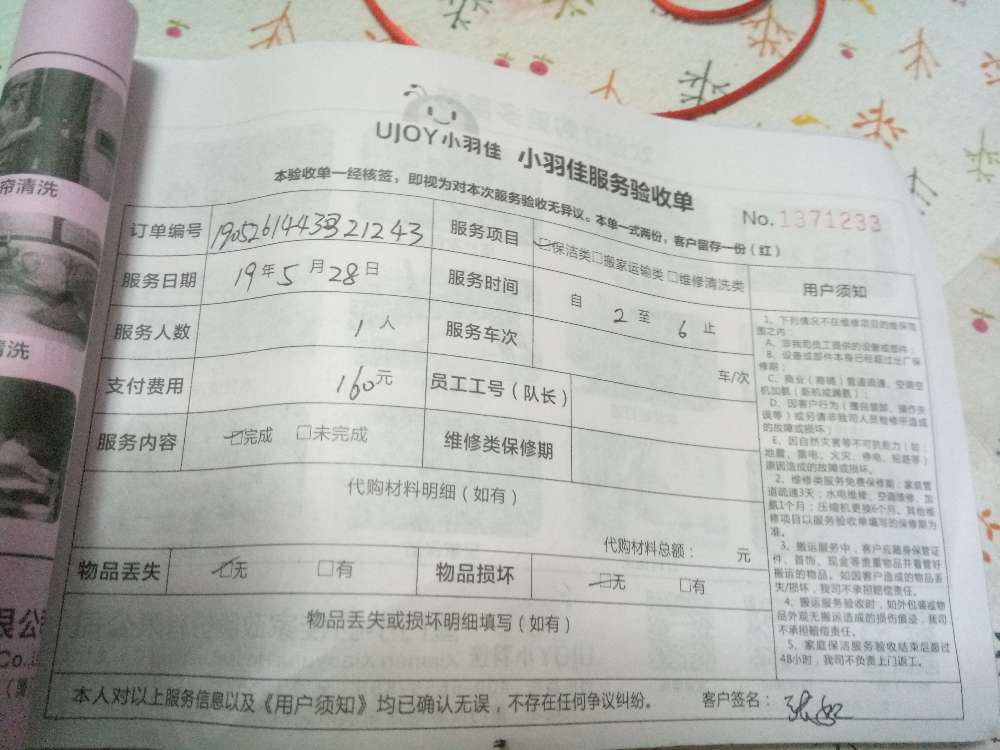 帘清洗
清洗
限公
Co.,
UJOY小羽佳 小羽佳服务验收单
本验收单一经核签，即视为对本次服务验收无异议。本单一式两份，客户留存一份（红）
No. 1371233
订单编号
服务项目 ☑保洁类□搬家运输类□维修清洗类
服务日期 19年5月28日 服务时间 自 2 至 6 止
服务人数 1人 服务车次 车/次
支付费用 160元 员工工号（队长）
服务内容 ☑完成 □未完成 维修类保修期
代购材料明细（如有）
代购材料总额： 元
物品丢失 ☑无 □有 物品损坏 ☑无 □有
物品丢失或损坏明细填写（如有）
用户须知
1、下列情况不在维修项目的维保范
围之内：
A、非我司员工提供的设备或部件；
B、设备或部件本身已经超过出厂保
修期；
C、商业（商铺）管道疏通、空调空
机加氨（新机或漏氨）；
D、因客户行为（擅自装卸、操作失
误等）或另请非我司人员检修所造成
的故障或损坏；
E、因自然灾害等不可抗能力（如：
地震、雷电、火灾、停电、短路等）
原因造成的故障或损坏。
2、维修类服务免费保修期：家庭管
道疏通3天；水电维修、空调维修、加
氨1个月；压缩机更换6个月。其他维
修项目以服务验收单填写的保修期为
准。
3、搬运服务中，客户应随身保管证
件、首饰、现金等贵重物品并看管好
搬运的物品。如因客户造成的物品丢
失/损坏，我司不承担赔偿责任。
4、搬运服务验收时，如外包装或物
品外观无搬运造成的损伤痕迹，我司
不承担赔偿责任。
5、家庭保洁服务验收结束后超过
48小时，我司不负责上门返工。
本人对以上服务信息以及《用户须知》均已确认无误，不存在任何争议纠纷。 客户签名：